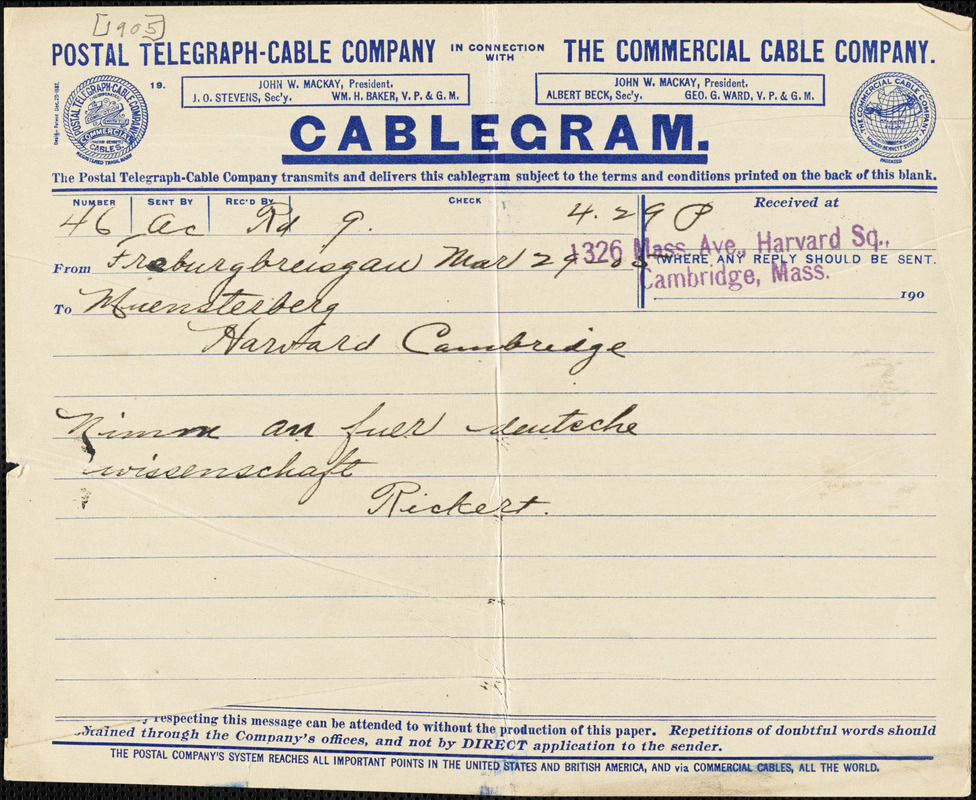 [1905]
POSTAL TELEGRAPH-CABLE COMPANY IN CONNECTION WITH THE COMMERCIAL CABLE COMPANY.
19.
JOHN W. MACKAY, President.
J. O. STEVENS, Sec'y. WM. H. BAKER, V. P. & G. M.
JOHN W. MACKAY, President.
ALBERT BECK, Sec'y. GEO. G. WARD, V. P. & G. M.
POSTAL TELEGRAPH-CABLE COMPANY
COMMERCIAL CABLES
REGISTERED TRADE MARK
THE COMMERCIAL CABLE COMPANY
CABLEGRAM.
The Postal Telegraph-Cable Company transmits and delivers this cablegram subject to the terms and conditions printed on the back of this blank.
NUMBER SENT BY REC'D BY CHECK
46 Ac Rd 9. 4.29 P
Received at
1326 Mass. Ave., Harvard Sq.,
(WHERE ANY REPLY SHOULD BE SENT.
Cambridge, Mass.
190
From Freburgbreisgau Mar 29 05
To Muensterberg
Harvard Cambridge
Nimm an fuer deutsche
wissenschaft
Rickert.
respecting this message can be attended to without the production of this paper. Repetitions of doubtful words should
tained through the Company's offices, and not by DIRECT application to the sender.
THE POSTAL COMPANY'S SYSTEM REACHES ALL IMPORTANT POINTS IN THE UNITED STATES AND BRITISH AMERICA, AND via COMMERCIAL CABLES, ALL THE WORLD.